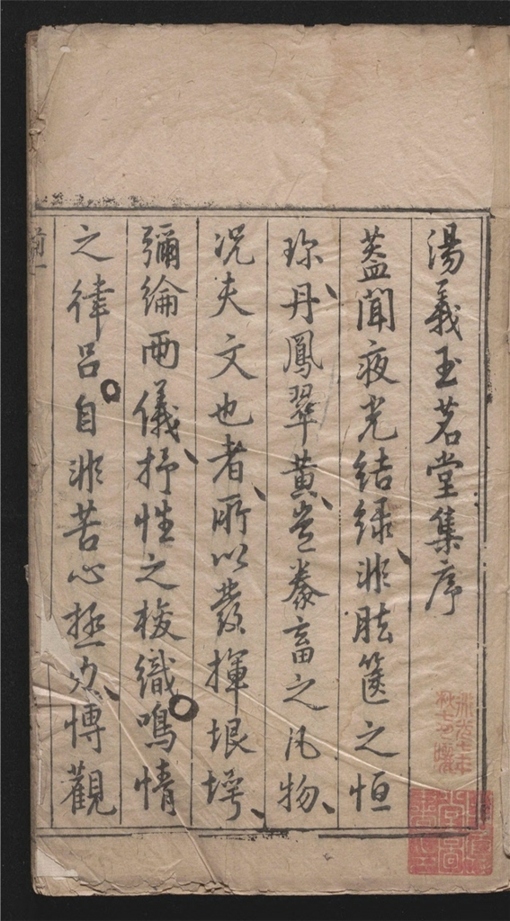 湯義玉茗堂集序
蓋聞夜光結緑、非胠篋之恒
珎、丹鳳翠黄、豈豢畜之凡物、
况夫文也者、所以發揮垠堮、
彌綸兩儀、抒性之梭織鳴情
之律吕。自非苦心極力、博觀